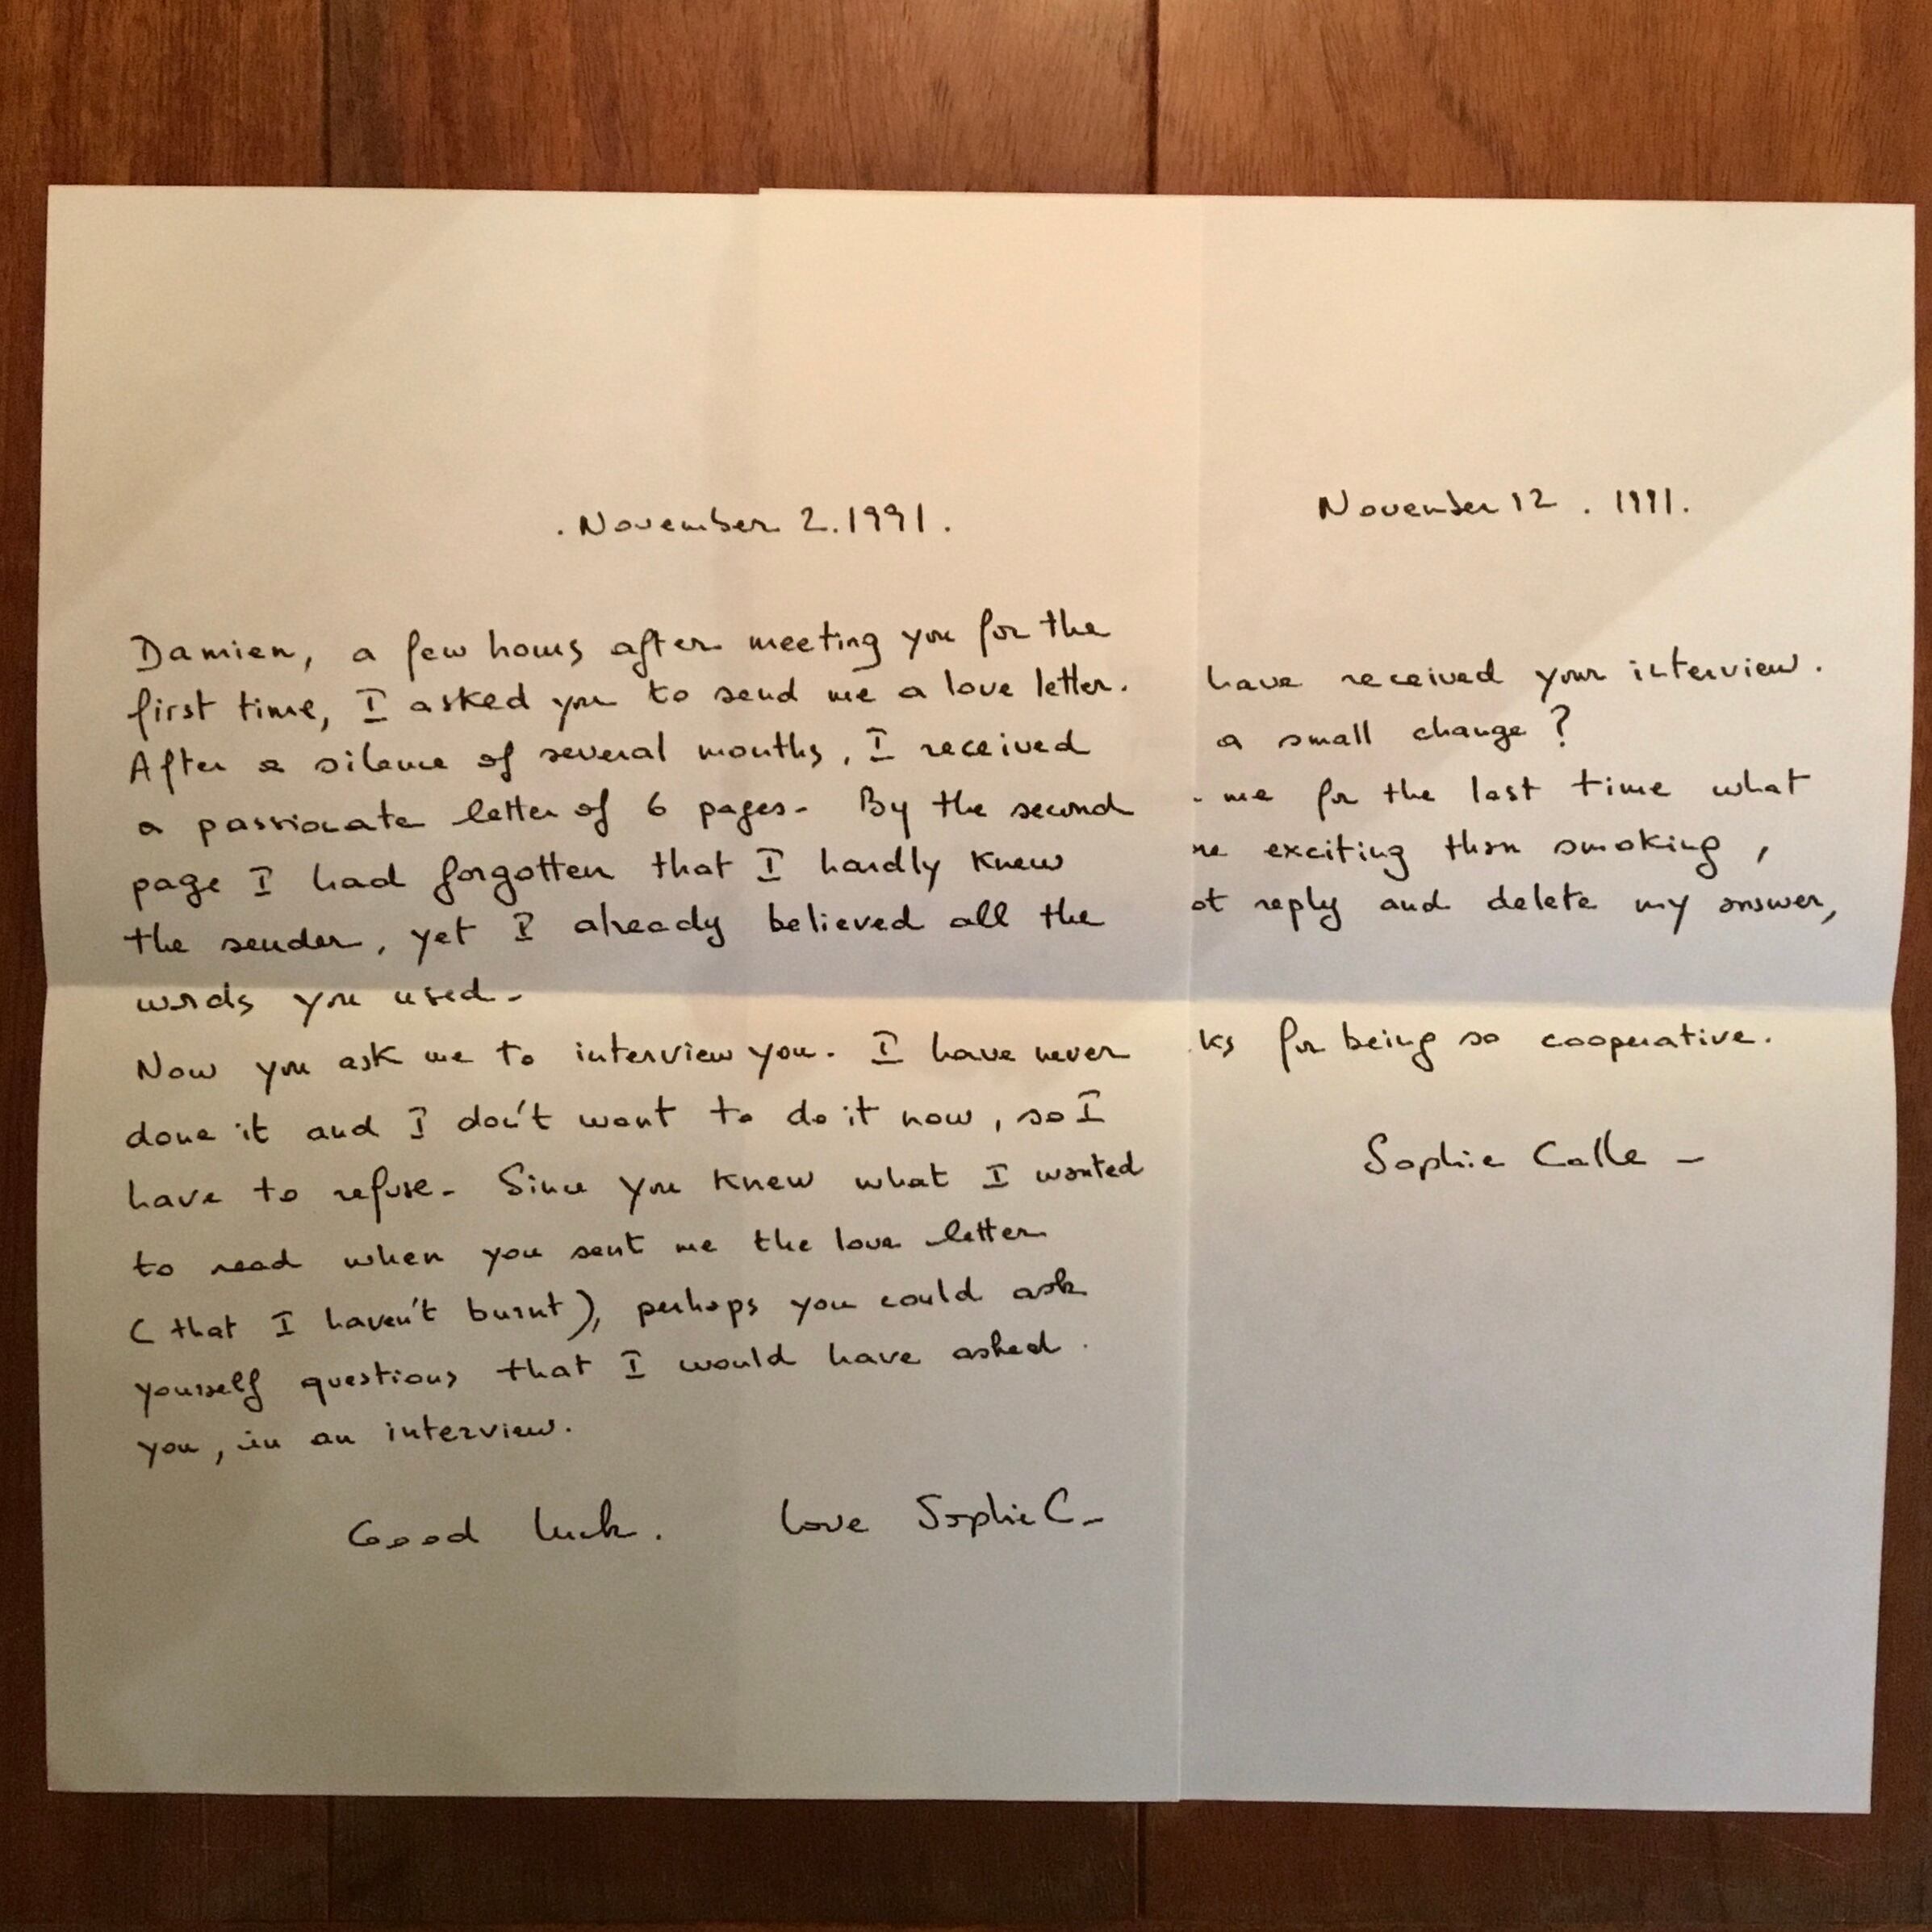 . November 2.1991.
Damien, a few hours after meeting you for the
first time, I asked you to send me a love letter.
After a silence of several months, I received
a passionate letter of 6 pages- By the second
page I had forgotten that I hardly knew
the sender, yet I already believed all the
words you used-
Now you ask me to interview you. I have never
done it and I don't want to do it now, so I
have to refuse- Since you knew what I wanted
to read when you sent me the love letter
(that I haven't burnt), perhaps you could ask
yourself questions that I would have asked
you, in an interview.
Good luck. Love Sophie C-
November 12. 1991.
have received your interview.
a small change?
me for the last time what
re exciting than smoking,
ot reply and delete my answer,
ks for being so cooperative.
Sophie Calle -